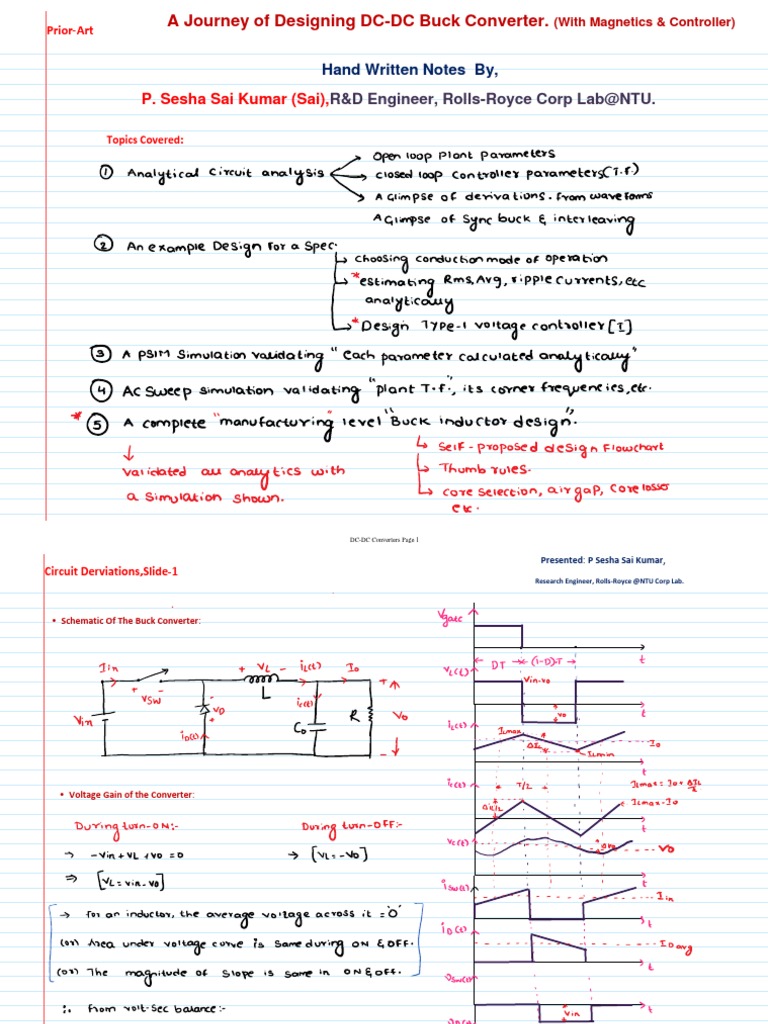 Prior-Art
A Journey of Designing DC-DC Buck Converter. (With Magnetics & Controller)
Hand Written Notes By,
P. Sesha Sai Kumar (Sai),R&D Engineer, Rolls-Royce Corp Lab@NTU.
Topics Covered:
① Analytical Circuit analysis
Open loop Plant Parameters
closed loop Controller parameters(T.f.)
A Glimpse of derivations. from waveforms
A Glimpse of Sync buck & interleaving
② An example Design for a Spec.
choosing conduction mode of operation
*estimating Rms, Avg, ripple currents, etc
analytically
*Design Type-1 voltage controller [I]
③ A PSIM Simulation validating "each parameter calculated analytically"
④ AC Sweep simulation validating "plant T.f.", its corner frequencies, etc.
* ⑤ A complete "manufacturing" level "Buck inductor design".
Validated all analytics with
a simulation shown.
Self-proposed design flowchart
Thumb rules.
core selection, air gap, core losses
etc.
DC-DC Converters Page 1
Circuit Derviations,Slide-1
Presented: P Sesha Sai Kumar,
Research Engineer, Rolls-Royce @NTU Corp Lab.
• Schematic Of The Buck Converter:
Iin + VL - iL(t) Io
+ VSW -
L
Vin
VD
iD(t)
ic(t)
Co
R
+ Vo -
• Voltage Gain of the Converter:
During turn-ON:-
→ -Vin+VL+Vo=0
⇒ [VL=Vin-Vo]
During turn-OFF:-
→ [VL=-Vo]
→ for an inductor, the average voltage across it = '0'
(or) Area under voltage curve is same during ON & OFF.
(or) The magnitude of slope is same in ON & OFF.
∴ from volt-sec balance:-
Vgate
t
DT (1-D)T
VL(t)
Vin-Vo
Vo
t
iL(t)
ILmax
ΔIL
ILmin
Io
t
T/2
ILmax = Io + ΔIL/2
ic(t)
ΔIL/2
ILmax-Io
t
Vc(t)
Vo
t
iSW(t)
Iin
t
iD(t)
ID avg
t
VSW(t)
Vin
t